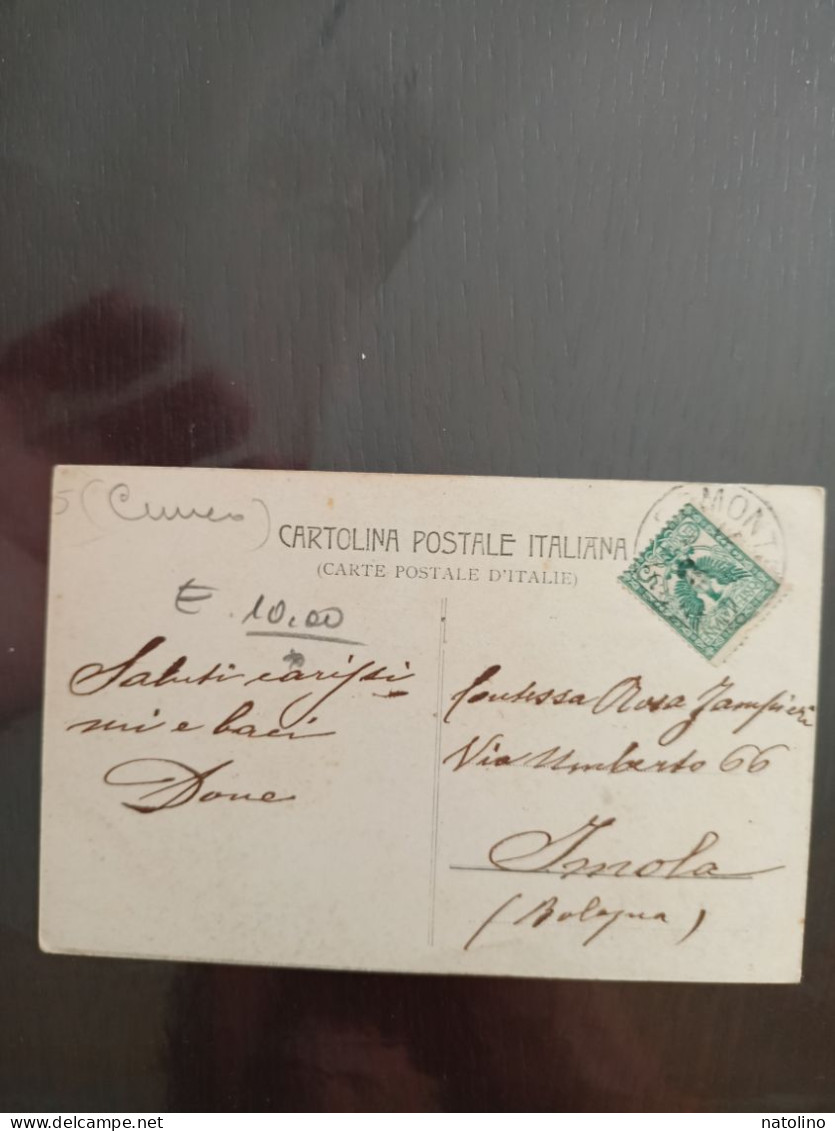 5 (Cuneo)
CARTOLINA POSTALE ITALIANA
(CARTE POSTALE D'ITALIE)
€. 10,00
Saluti carissi
mi e baci
Done
Contessa Rosa Zampieri
Via Umberto 66
Imola
(Bologna)
MONT
natolino